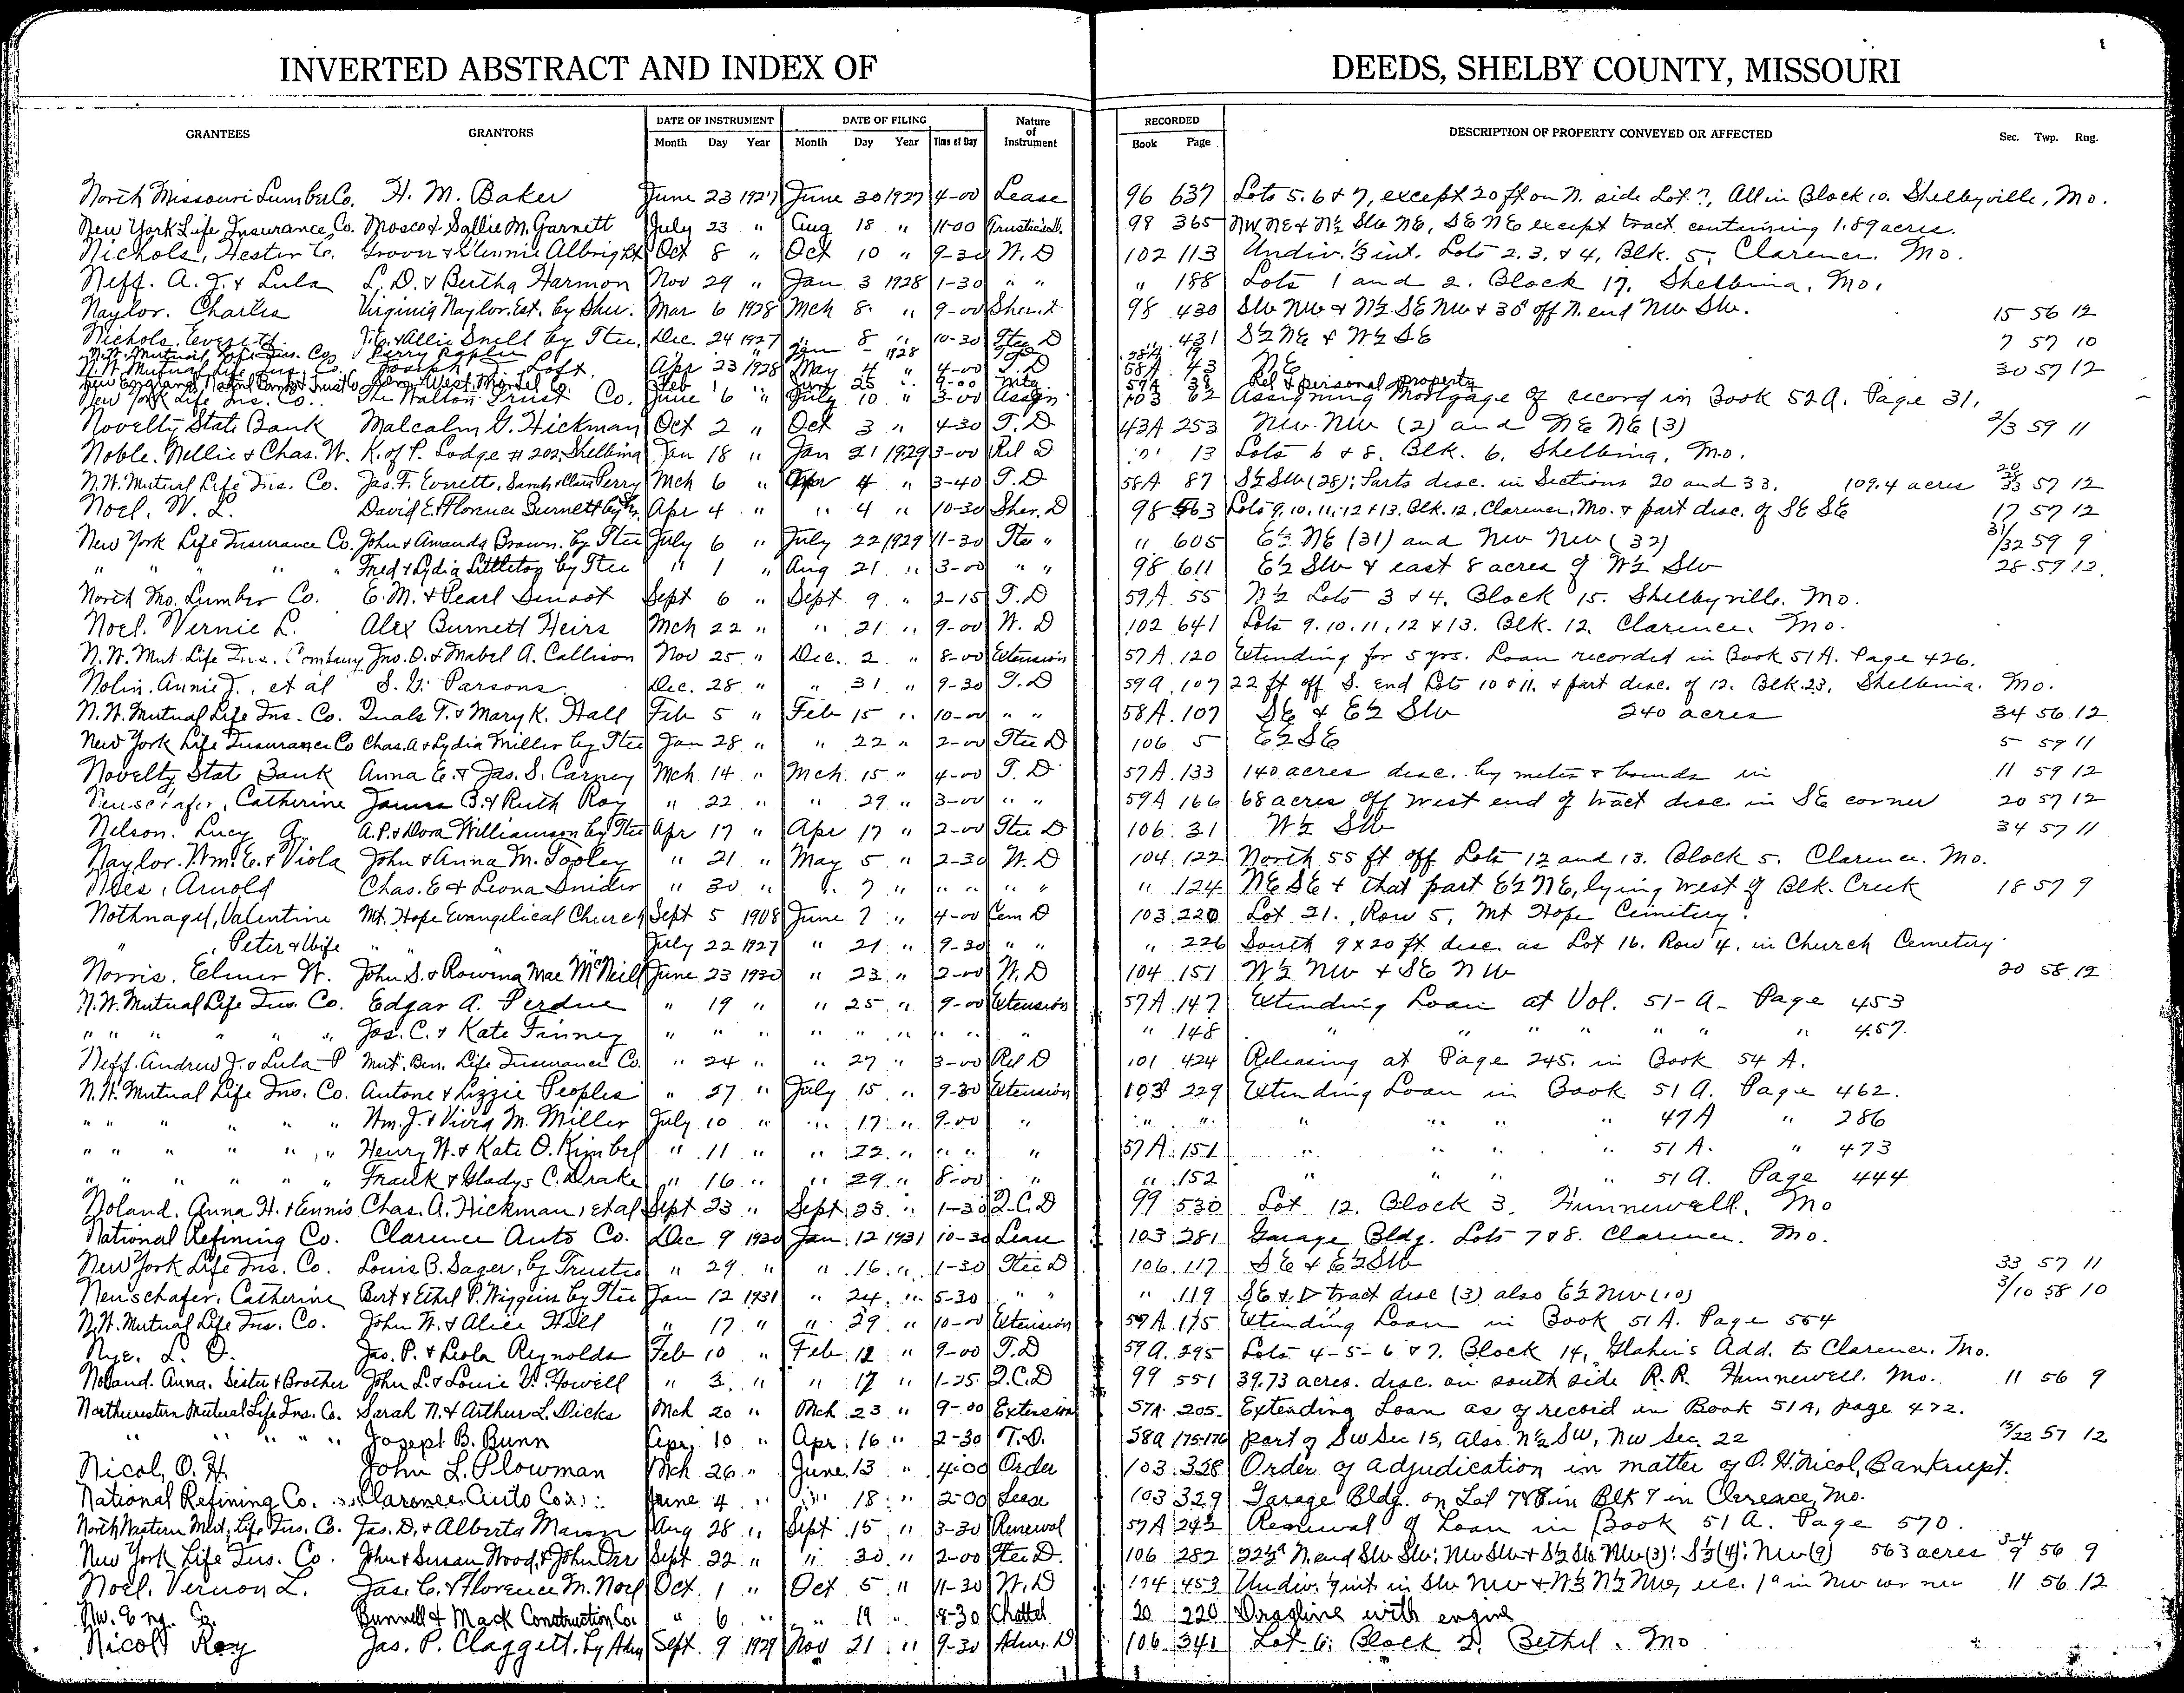 INVERTED ABSTRACT AND INDEX OF DEEDS, SHELBY COUNTY, MISSOURI
GRANTEES GRANTORS DATE OF INSTRUMENT DATE OF FILING Nature of Instrument RECORDED DESCRIPTION OF PROPERTY CONVEYED OR AFFECTED Sec. Twp. Rng.
Month Day Year Month Day Year Time of Day Book Page
North Missouri Lumber Co. H. M. Baker June 23 1927 June 30 1927 4-00 Lease 96 637 Lots 5. 6 & 7, except 20 ft on N. side Lot 7, All in Block 10. Shelbyville, Mo.
New York Life Insurance Co. Mosco & Sallie M. Garnett July 23 " Aug 18 " 11-00 Trustee's D. 98 365 NW NE & N½ SW NE, SE NE except tract containing 1.89 acres.
Nichols, Hester E. Grover & Glennie Albright Oct 8 " Oct 10 " 9-30 W. D 102 113 Undiv. ⅓ int. Lots 2. 3. & 4, Blk. 5, Clarence. Mo.
Neff. A. J. & Lula L. D. & Bertha Harmon Nov 29 " Jan 3 1928 1-30 " " " 188 Lots 1 and 2. Block 17. Shelbina, Mo.
Naylor. Charles Virginia Naylor. Est. by Sher. Mar 6 1928 Mch 8. " 9-00 Sher. D. 98 430 SW NW & N½ SE NW & 30ª off N. end NW SW. 15 56 12
Nichols. Everett. J. C. & Allie Snell by Ttee. Dec. 24 1927 " 8 " 10-30 Ttee D " 431 S½ NE & N½ SE 7 57 10
N.W. Mutual Life Ins. Co. Perry Jan - 1928 58A 19
N.W. Mutual Life Ins. Co. Joseph T. Loft. Apr 23 1928 May 4 " 4-00 T. D 58A. 43 NE 30 57 12
New England Natnl Bank & Trust Co West. Co. Feb 1 " June 25 " 9-00 Mtg. 57A 38 Rel & personal property
New York Life Ins. Co. The Walton Trust Co. June 6 " July 10 " 3-00 Assgn. 103 62 Assigning Mortgage of record in Book 52A. Page 31.
Novelty State Bank Malcalm G. Hickman Oct 2 " Oct 3 " 4-30 T. D 43A 253 NW. NW (2) and NE NE (3) 2/3 59 11
Noble. Nellie & Chas. W. K. of P. Lodge # 202, Shelbina Jan 18 " Jan 21 1929 3-00 Rel D 13 Lots 6 & 8. Blk. 6. Shelbina, Mo.
N.W. Mutual Life Ins. Co. Jas. F. Everette, Sarah & Clair Perry Mch 6 " Apr 4 " 3-40 T. D 58A 87 S½ SW (28); Parts desc. in Sections 20 and 33. 109.4 acres 20 28 33 57 12
Noel. W. L. David E. & Florence Burnett by Sh. Apr 4 " " 4 " 10-30 Sher. D 98 563 Lots 9. 10. 11. 12 & 13. Blk. 12, Clarence, Mo. & part desc. of SE SE 17 57 12
New York Life Insurance Co. John & Amanda Brown. by Ttee July 6 " July 22 1929 11-30 Ttee " " 605 E½ NE (31) and NW NW (32) 31/32 59 9
" " " " " Fred & Lydia Littleton by Ttee " 1 " Aug 21 " 3-00 " " 98 611 E½ SW & east 8 acres of W½ SW 28 59 12
North Mo. Lumber Co. E. M. & Pearl Smoot Sept 6 " Sept 9 " 2-15 T. D 59A. 55 N½ Lots 3 & 4. Block 15. Shelbyville. Mo.
Noel. Vernie L. Alex Burnett Heirs Mch 22 " " 21 " 9-00 W. D 102 641 Lots 9. 10. 11, 12 & 13. Blk. 12. Clarence. Mo.
N.W. Mut. Life Ins. Company Jno. O. & Mabel A. Callison Nov 25 " Dec. 2 " 8-00 Extension 57A. 120 Extending for 5 yrs. Loan recorded in Book 51A. Page 426.
Nolin. Annie J., et al S. G. Parsons Dec. 28 " " 31 " 9-30 T. D 59A. 107 22 ft off S. end Lots 10 & 11. & part desc. of 12. Blk. 23. Shelbina. Mo.
N.W. Mutual Life Ins. Co. Quals T. & Mary K. Hall Feb 5 " Feb 15 " 10-00 " " 58A. 107 SE & E½ SW 240 acres 34 56 12
New York Life Insurance Co Chas. A & Lydia Miller by Ttee Jan 28 " " 22 " 2-00 Ttee D 106 5 E½ SE 5 59 11
Novelty Stat Bank Anna E. & Jas. S. Carney Mch 14 " Mch 15 " 4-00 T. D 57A. 133 140 acres desc. by metes & bounds in 11 59 12
Neuschafer, Catherine James B. & Ruth Roy " 22 " " 29 " 3-00 " " 59A 166 68 acres off west end of tract desc. in SE corner 20 57 12
Nelson. Lucy A. A. P. & Dora Williamson by Ttee Apr 17 " Apr 17 " 2-00 Ttee D 106. 31 W½ SW 34 57 11
Naylor. Wm. E. & Viola John & Anna M. Tooley " 21 " May 5 " 2-30 W. D 104. 122 North 55 ft off Lots 12 and 13. Block 5. Clarence. Mo.
Noes, Arnold Chas. E & Leona Snider " 30 " " 7 " " " " " " 124 NE SE & that part E½ NE, lying west of Blk. Creek 18 57 9
Nothnagel, Valentine Mt. Hope Evangelical Church Sept 5 1908 June 7 " 4-00 Cem D 103. 220 Lot 21., Row 5, Mt Hope Cemitery.
" , Peter & Wife " " " July 22 1927 " 21 " 9-30 " " " 226 South 9 x 20 ft desc. as Lot 16. Row 4. in Church Cemetery.
Norris. Elmer W. John S. & Rowina Mae McNeill June 23 1930 " 23 " 2-00 W. D 104. 151 W½ NW & SE NW 20 58 12
N.W. Mutual Life Ins. Co. Edgar A. Perdue " 19 " " 25 " 9-00 Extension 57A. 147 Extending Loan at Vol. 51-A- Page 453
" " " " " Jas. C. & Kate Finney " " " " " " " " " " 148 " " " " " " 457.
Neff. Andrew J. & Lula P Mut. Ben. Life Insurance Co. " 24 " " 27 " 3-00 Rel D 101 424 Releasing at Page 245. in Book 54 A.
N.W. Mutual Life Ins. Co. Antone & Lizzie Peoples " 27 " July 15 " 9-30 Extension 103 229 Extending Loan in Book 51 A. Page 462.
" " " " " " Wm. J. & Viva M. Miller July 10 " " 17 " 9-00 " " " " " " " 47A " 286
" " " " " " Henry W. & Kate O. Kimbel " 11 " " 22 " " " " 57A. 151 " " " " 51 A. " 473
" " " " " " Frank & Gladys C. Drake " 16 " " 29 " 8-00 " " 152 " " " 51 A. Page 444
Noland. Anna H. & Ennis Chas. A. Hickman, et al Sept 23 " Sept. 23 " 1-30 Q. C. D 99 530 Lot 12. Block 3. Hunnewell. Mo
National Refining Co. Clarence Auto Co. Dec 9 1930 Jan. 12 1931 10-30 Lease 103. 281 Garage Bldg. Lots 7 & 8. Clarence. Mo.
New York Life Ins. Co. Louis B. Sager, by Trustee " 29 " " 16 " 1-30 Ttee D 106. 117 SE & E½ SW 33 57 11
Neuschafer, Catherine Bert & Ethel P. Wiggins by Ttee Jan 12 1931 " 24 " 5-30 " " " 119 SE & tract desc (3) also E½ NW (10) 3/10 58 10
N.W. Mutual Life Ins. Co. John W. & Alice Hill " 17 " " 29 " 10-00 Extension 57A. 175 Extending Loan in Book 51A. Page 554
Nye. L. O. Jas. P. & Leola Reynolds Feb 10 " Feb. 12 " 9-00 T. D 59A. 295 Lots 4-5-6 & 7. Block 14, Glahn's Add. to Clarence. Mo.
Noland. Anna. Sister & Brother John L. & Louie V. Howell " 3. " " 17 " 1-25 Q. C. D 99 551 39.73 acres. desc. on south side R.R. Hunnewell. Mo. 11 56 9
Northwestern Mutual Life Ins. Co. Sarah N. & Arthur L. Dicks Mch 20 " Mch 23 " 9-00 Extension 57A. 205. Extending Loan as of record in Book 51A, page 472.
" " " " " Joseph B. Bunn Apr. 10 " Apr. 16 " 2-30 T. D. 58A 175-176 part of SW Sec 15, Also N½ SW, NW Sec. 22 15/22 57 12
Nicol, O. H. John L. Plowman Mch 26 " June 13 " 4:00 Order 103. 328 Order of adjudication in matter of O. H. Nicol, Bankrupt.
National Refining Co. Clarence Auto Co. June 4 " " 18 " 2-00 Lease 103 329 Garage Bldg. on Lot 7&8 in Blk 7 in Clarence, Mo.
North Western Mut. Life Ins. Co. Jas. D. & Alberta Mason Aug. 28 " Sept. 15 " 3-30 Renewal 57A 242 Renewal of Loan in Book 51 A. Page 570.
New York Life Ins. Co. John & Susan Wood, & John Orr Sept 22 " " 30 " 2-00 Ttee D. 106 282 22½ª N. end SW SW; NW SW & S½ SW NW (3); S½ (4); NW (9) 563 acres 3-4 9 56 9
Noel. Vernon L. Jas. C. & Florence M. Noel Oct 1 " Oct 5 " 11-30 W. D 104 453 Undiv. int in SW NW & N½ NW, exc. 1ª in NW cor 11 56 12
Nw. Eng. Co. Bunnell & Mack Construction Co. " 6 " " 19 " 8-30 Chattel 20 220 Dragline with engine
Nicol Roy Jas. P. Claggett. by Adm Sept. 9 1929 Nov 21 " 9-30 Adm. D 106 341 Lot 6. Block 2. Bethel. Mo